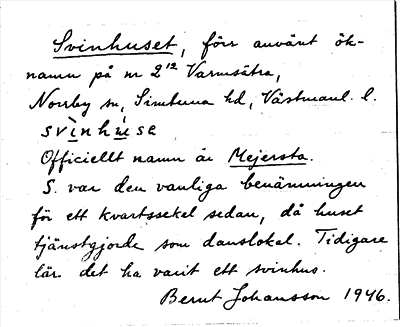 Svinhuset, förr använt ök-
namn på nr 2¹² Varmsätra,
Norrby sn, Simtuna hd, Västmanl. l.
svìnhú̀se
Officiellt namn är Mejersta.
S. var den vanliga benämningen
för ett kvartssekel sedan, då huset
tjänstgjorde som danslokal. Tidigare
lär det ha varit ett svinhus.
Bernt Johansson 1946.